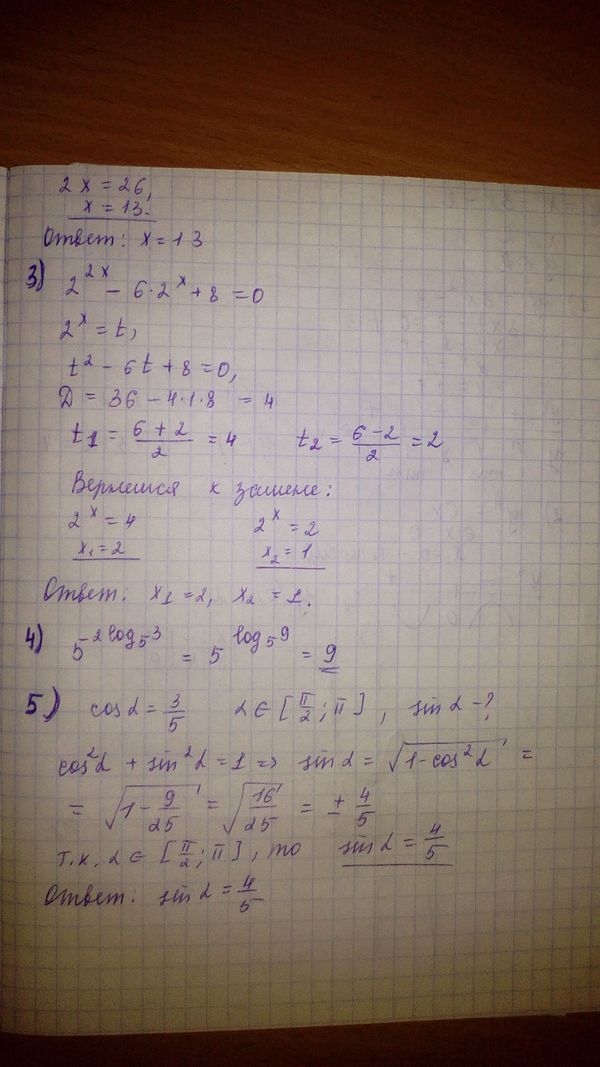 2x = 26,
x = 13.
Ответ: x = 13
3) 2^{2x} - 6·2^x + 8 = 0
2^x = t,
t² - 6t + 8 = 0,
Д = 36 - 4·1·8 = 4
t₁ = \frac{6+2}{2} = 4 t₂ = \frac{6-2}{2} = 2
Вернемся к замене:
2^x = 4 2^x = 2
x₁ = 2 x₂ = 1
Ответ: x₁ = 2, x₂ = 1.
4) 5^{2 log₅ 3} = 5^{log₅ 9} = 9
5) cos α = \frac{3}{5} α ∈ [\frac{π}{2}; π], sin α - ?
cos²α + sin²α = 1 => sin α = √(1 - cos²α) =
= √(1 - \frac{9}{25}) = √(\frac{16}{25}) = ± \frac{4}{5}
т.к. α ∈ [\frac{π}{2}; π], то sin α = \frac{4}{5}
Ответ: sin α = \frac{4}{5}